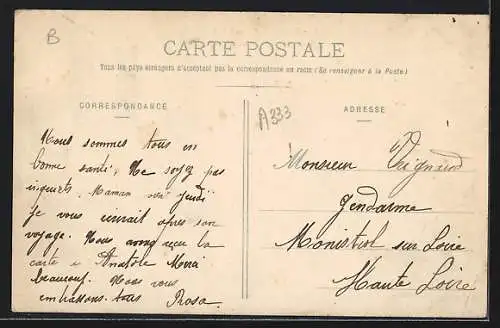 B
CARTE POSTALE
Tous les pays étrangers n'acceptent pas la correspondance au recto (Se renseigner à la Poste)
CORRESPONDANCE
A333
ADRESSE
Nous sommes tous en
bonne santé, Ne soyez pas
inquiets. Maman Jeudi
Je vous après son
voyage. Nous avons reçu la
carte a Anatole Merci
beaucoup. Nous vous
embrassons tous Rosa
Monsieur
Gendarme
Monistrol sur Loire
Haute Loire